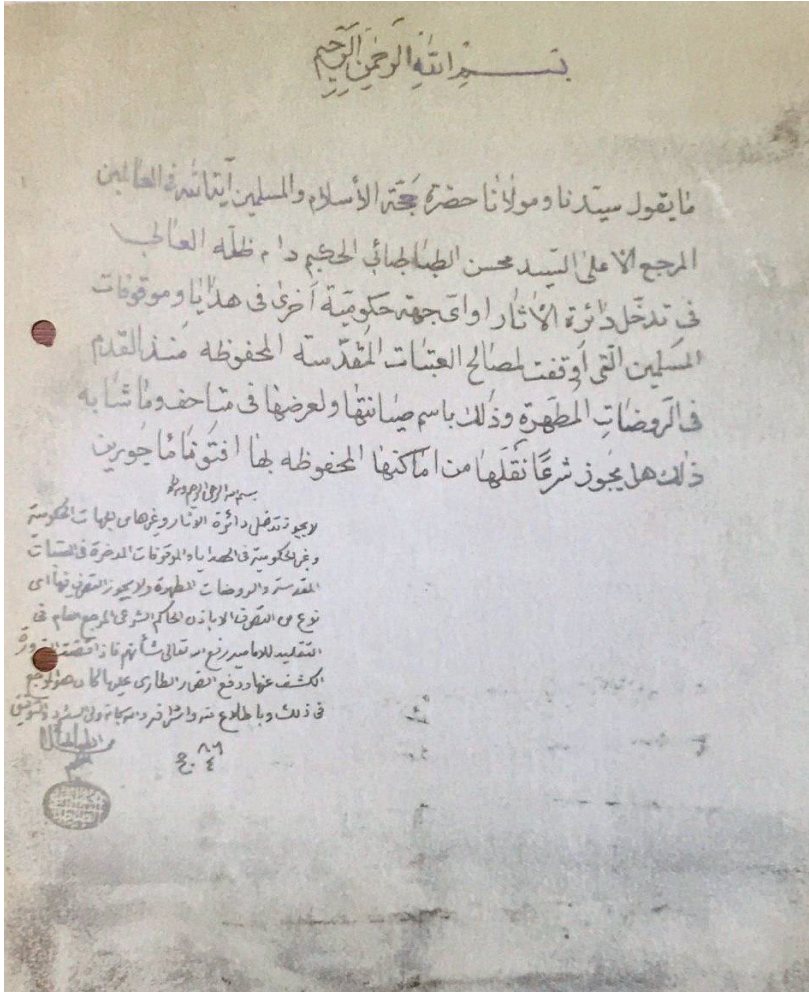 بسم الله الرحمن الرحيم
ما يقول سيدنا ومولانا حضرة حجة الأسلام والمسلمين آية الله في العالمين
المرجع الاعلى السيد محسن الطباطبائي الحكيم دام ظله العالي
في تدخل دائرة الأثار او اي جهة حكومية أخرى في هدايا وموقوفات
المسلمين التي أوقفت لمصالح العتبات المقدسة المحفوظه منذ القدم
في الروضات المطهرة وذلك باسم صيانتها ولعرضها في متاحف وما شابه
ذلك هل يجوز شرعًا نقلها من اماكنها المحفوظه بها افتونا مأجورين
بسم الله الرحمن الرحيم وله الحمد
لا يجوز تدخل دائرة الاثار وغيرها من الجهات الحكومية
وغير الحكومية في الهدايا والموقوفات المدخرة في العتبات
المقدسة والروضات المطهرة ولا يجوز التصرف فيها اي
نوع من التصرف الا باذن الحاكم الشرعي المرجع العام في
التقليد للامامية رفع الله تعالى شأنهم فاذا اقتضت الضرورة
الكشف عنها ودفع الضرر الطارئ عليها كان هو المرجع
في ذلك وباطلاع منه واشراف والله سبحانه ولي التسديد والتوفيق
محسن الطباطبائي
الحكيم